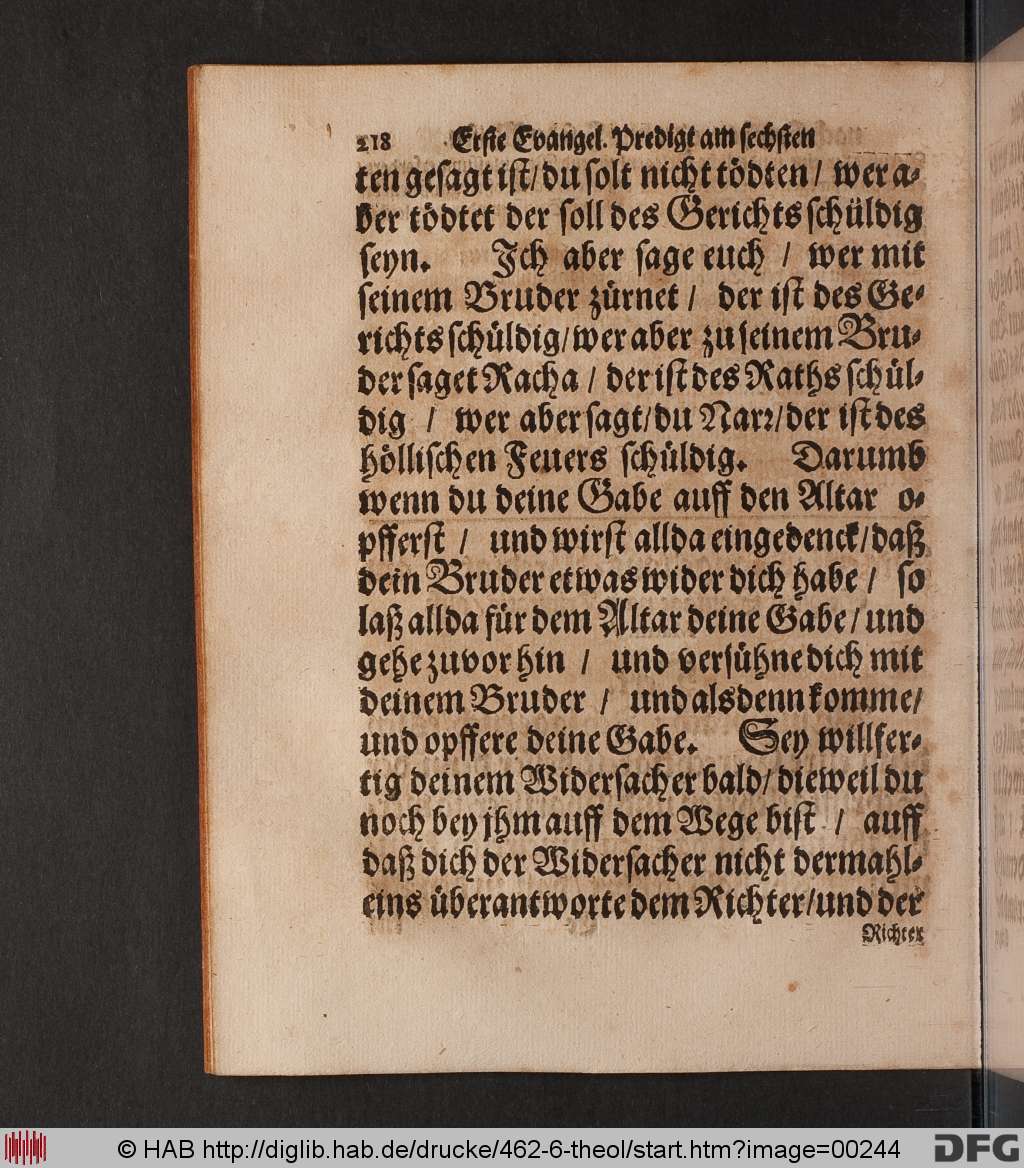 218 Erste Evangel. Predigt am sechsten
ten gesagt ist/ du solt nicht tödten/ wer a-
ber tödtet der soll des Gerichts schüldig
seyn. Ich aber sage euch / wer mit
seinem Bruder zürnet / der ist des Ge-
richts schüldig/ wer aber zu seinem Bru-
der saget Racha / der ist des Raths schül-
dig / wer aber sagt/ du Narr/ der ist des
höllischen Feuers schüldig. Darumb
wenn du deine Gabe auff den Altar o-
pfferst / und wirst allda eingedenck/ daß
dein Bruder etwas wider dich habe / so
laß allda für dem Altar deine Gabe / und
gehe zuvor hin / und versühne dich mit
deinem Bruder / und alsdenn komme/
und opffere deine Gabe. Sey willfer-
tig deinem Widersacher bald/ dieweil du
noch bey jhm auff dem Wege bist / auff
daß dich der Widersacher nicht dermahl-
eins überantworte dem Richter/ und der
Richter
© HAB http://diglib.hab.de/drucke/462-6-theol/start.htm?image=00244
DFG